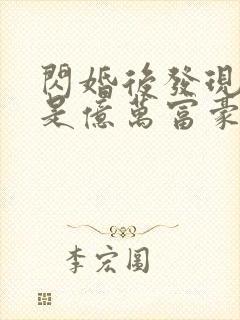 閃婚後發現
是億萬富豪
李宏圓